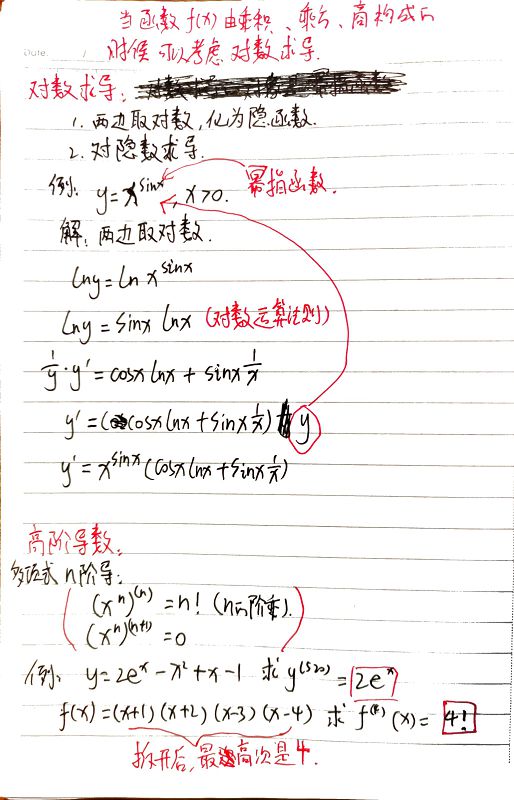 当函数 f(x) 由乘积、乘方、商构成的
时候可以考虑对数求导.
Date: /
对数求导:
1. 两边取对数, 化为隐函数.
2. 对隐数求导.
例: y = x^{sinx}, x>0. 幂指函数.
解: 两边取对数.
lny = ln x^{sinx}
lny = sinx lnx (对数运算法则)
1/y · y' = cosx lnx + sinx 1/x
y' = (cosx lnx + sinx 1/x) y
y' = x^{sinx} (cosx lnx + sinx 1/x)
高阶导数:
多项式 n 阶导:
(x^n)^{(n)} = n! (n的阶乘).
(x^n)^{(n+1)} = 0
例: y = 2e^x - x^2 + x - 1 求 y^{(520)} = 2e^x
f(x) = (x+1)(x+2)(x-3)(x-4) 求 f^{(4)}(x) = 4!
拆开后, 最高次是4.